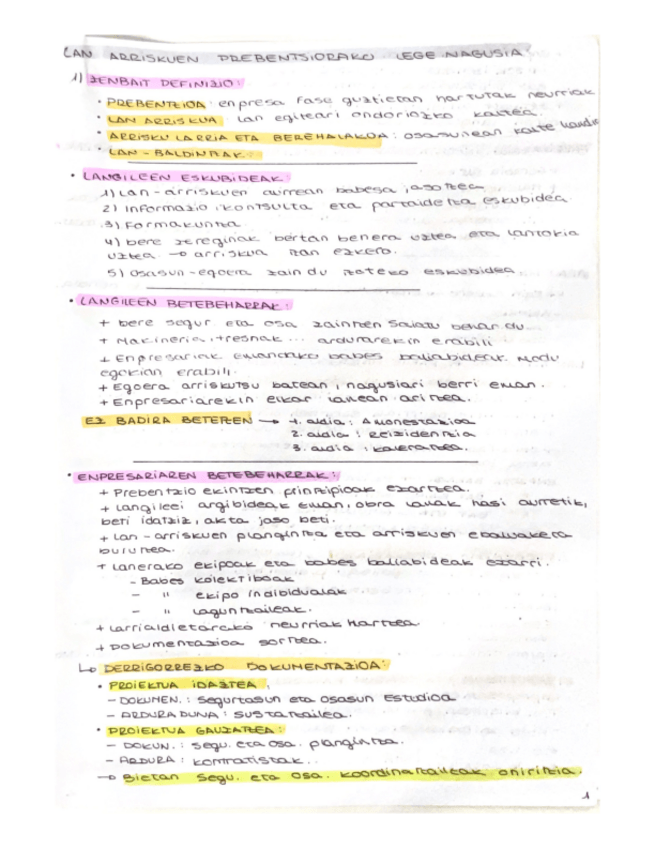 LAN ARRISKUEN PREBENTSIORAKO LEGE NAGUSIA:
1) ZENBAIT DEFINIZIO:
• PREBENTZIOA: enpresa fase guztietan hartutak neurriak
• LAN ARRISKUA: lan egiteari ondoriozko kaltea.
• ARRISKU LARRIA ETA BEREHALAKOA: osasunean kalte handia
• LAN-BALDINTZAK:
• LANGILEEN ESKUBIDEAK:
1) Lan-arriskuen aurrean babesa jasotzea
2) Informazio, kontsulta eta partaidetza eskubidea
3) Formakuntza.
4) bere zereginak bertan behera uztea eta lantokia
uztea → arriskua izan ezkero.
5) Osasun-egoera zaindu izateko eskubidea.
• LANGILEEN BETEBEHARRAK:
+ bere segur. eta osa. zaintzen saiatu behar du.
+ Makineria, tresnak... ardurarekin erabili
+ Enpresariak emandako babes baliabideak modu
egokian erabili.
+ Egoera arriskutsu batean, nagusiari berri eman.
+ Enpresariarekin elkar lanean aritzea.
EZ BADIRA BETETZEN → 1. aldia: Amonestazioa
2. aldia: Reizidentzia
3. aldia: kaleratzea.
• ENPRESARIAREN BETEBEHARRAK:
+ Prebentzio ekintzen printzipioak ezartzea.
+ Langileei argibideak eman, obra lanak hasi aurretik,
beti idatziz, akta jaso beti.
+ Lan-arriskuen plangintza eta arriskuen ebaluaketa
burutzea.
+ Lanerako ekipoak eta babes baliabideak ezarri.
- Babes kolektiboak
- " ekipo indibidualak
- " laguntzaileak.
+ Larrialdietarako neurriak hartzea
+ Dokumentazioa sortzea.
↳ DERRIGORREZKO DOKUMENTAZIOA:
• PROIEKTUA IDAZTEA:
- DOKUMEN.: Segurtasun eta osasun Estudioa
- ARDURADUNA: SUSTATZAILEA.
• PROIEKTUA GAUZATZEA:
- DOKUN.: segu. eta osa. plangintza.
- ARDURA: kontratistak.
→ Bietan segu. eta osa. koordinatzaileak
1